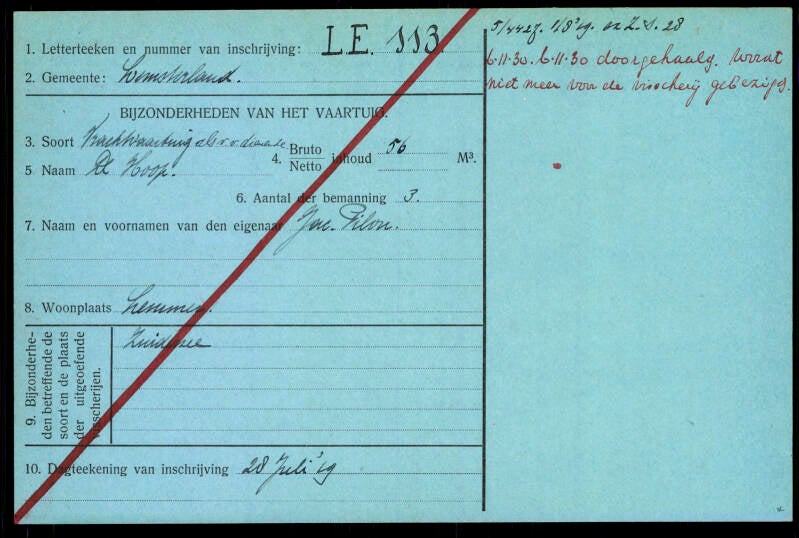 1. Letterteeken en nummer van inschrijving: L.E. 113
2. Gemeente: Lemsterland.
BIJZONDERHEDEN VAN HET VAARTUIG.
3. Soort Vrachtvaartuig als v.v. dienende
4. Bruto
Netto inhoud 56 M³.
5 Naam De Hoop.
6. Aantal der bemanning 3.
7. Naam en voornamen van den eigenaar Jac. Filon.
8. Woonplaats Lemmer.
9. Bijzonderhe-
den betreffende de
soort en de plaats
der uitgeoefende
visscherijen.
Zuiderzee
10. Dagteekening van inschrijving 28 Juli '19
1/8 '19. Z.S. 28
6.11.30. 6.11.30 doorgehaald. Wordt
niet meer voor de visscherij gebezigd.